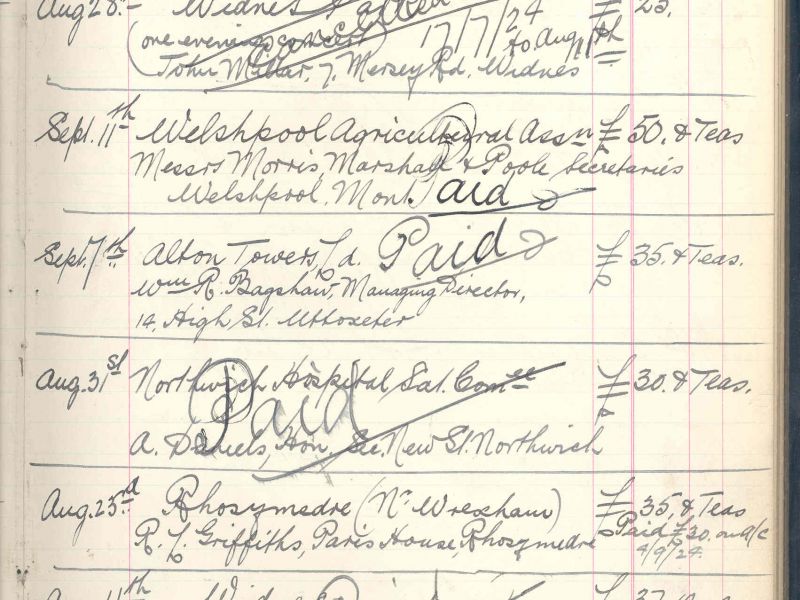 Aug 28.- Widnes £ 25.
(one evening concert) 17/7/24 to Aug 11th
John Millar, 7, Mersey Rd. Widnes
Sept. 11th Welshpool Agricultural Assn £ 50. & Teas
Messrs Morris, Marshall & Poole Secretaries
Welshpool, Mont. Paid
Sept. 7th Alton Towers, Ld. Paid £ 35. & Teas.
Wm R. Bagshaw, Managing Director,
14, High St. Uttoxeter
Aug. 31st Northwich Hospital Sat. Comee £ 30. & Teas.
Paid
A. Daniels, Hon. Sec. New St. Northwich
Aug. 23rd Rhosymedre (Nr Wrexham) £ 35. & Teas
R. L. Griffiths, Paris House, Rhosymedre Paid £30. on a/c
4/9/24.